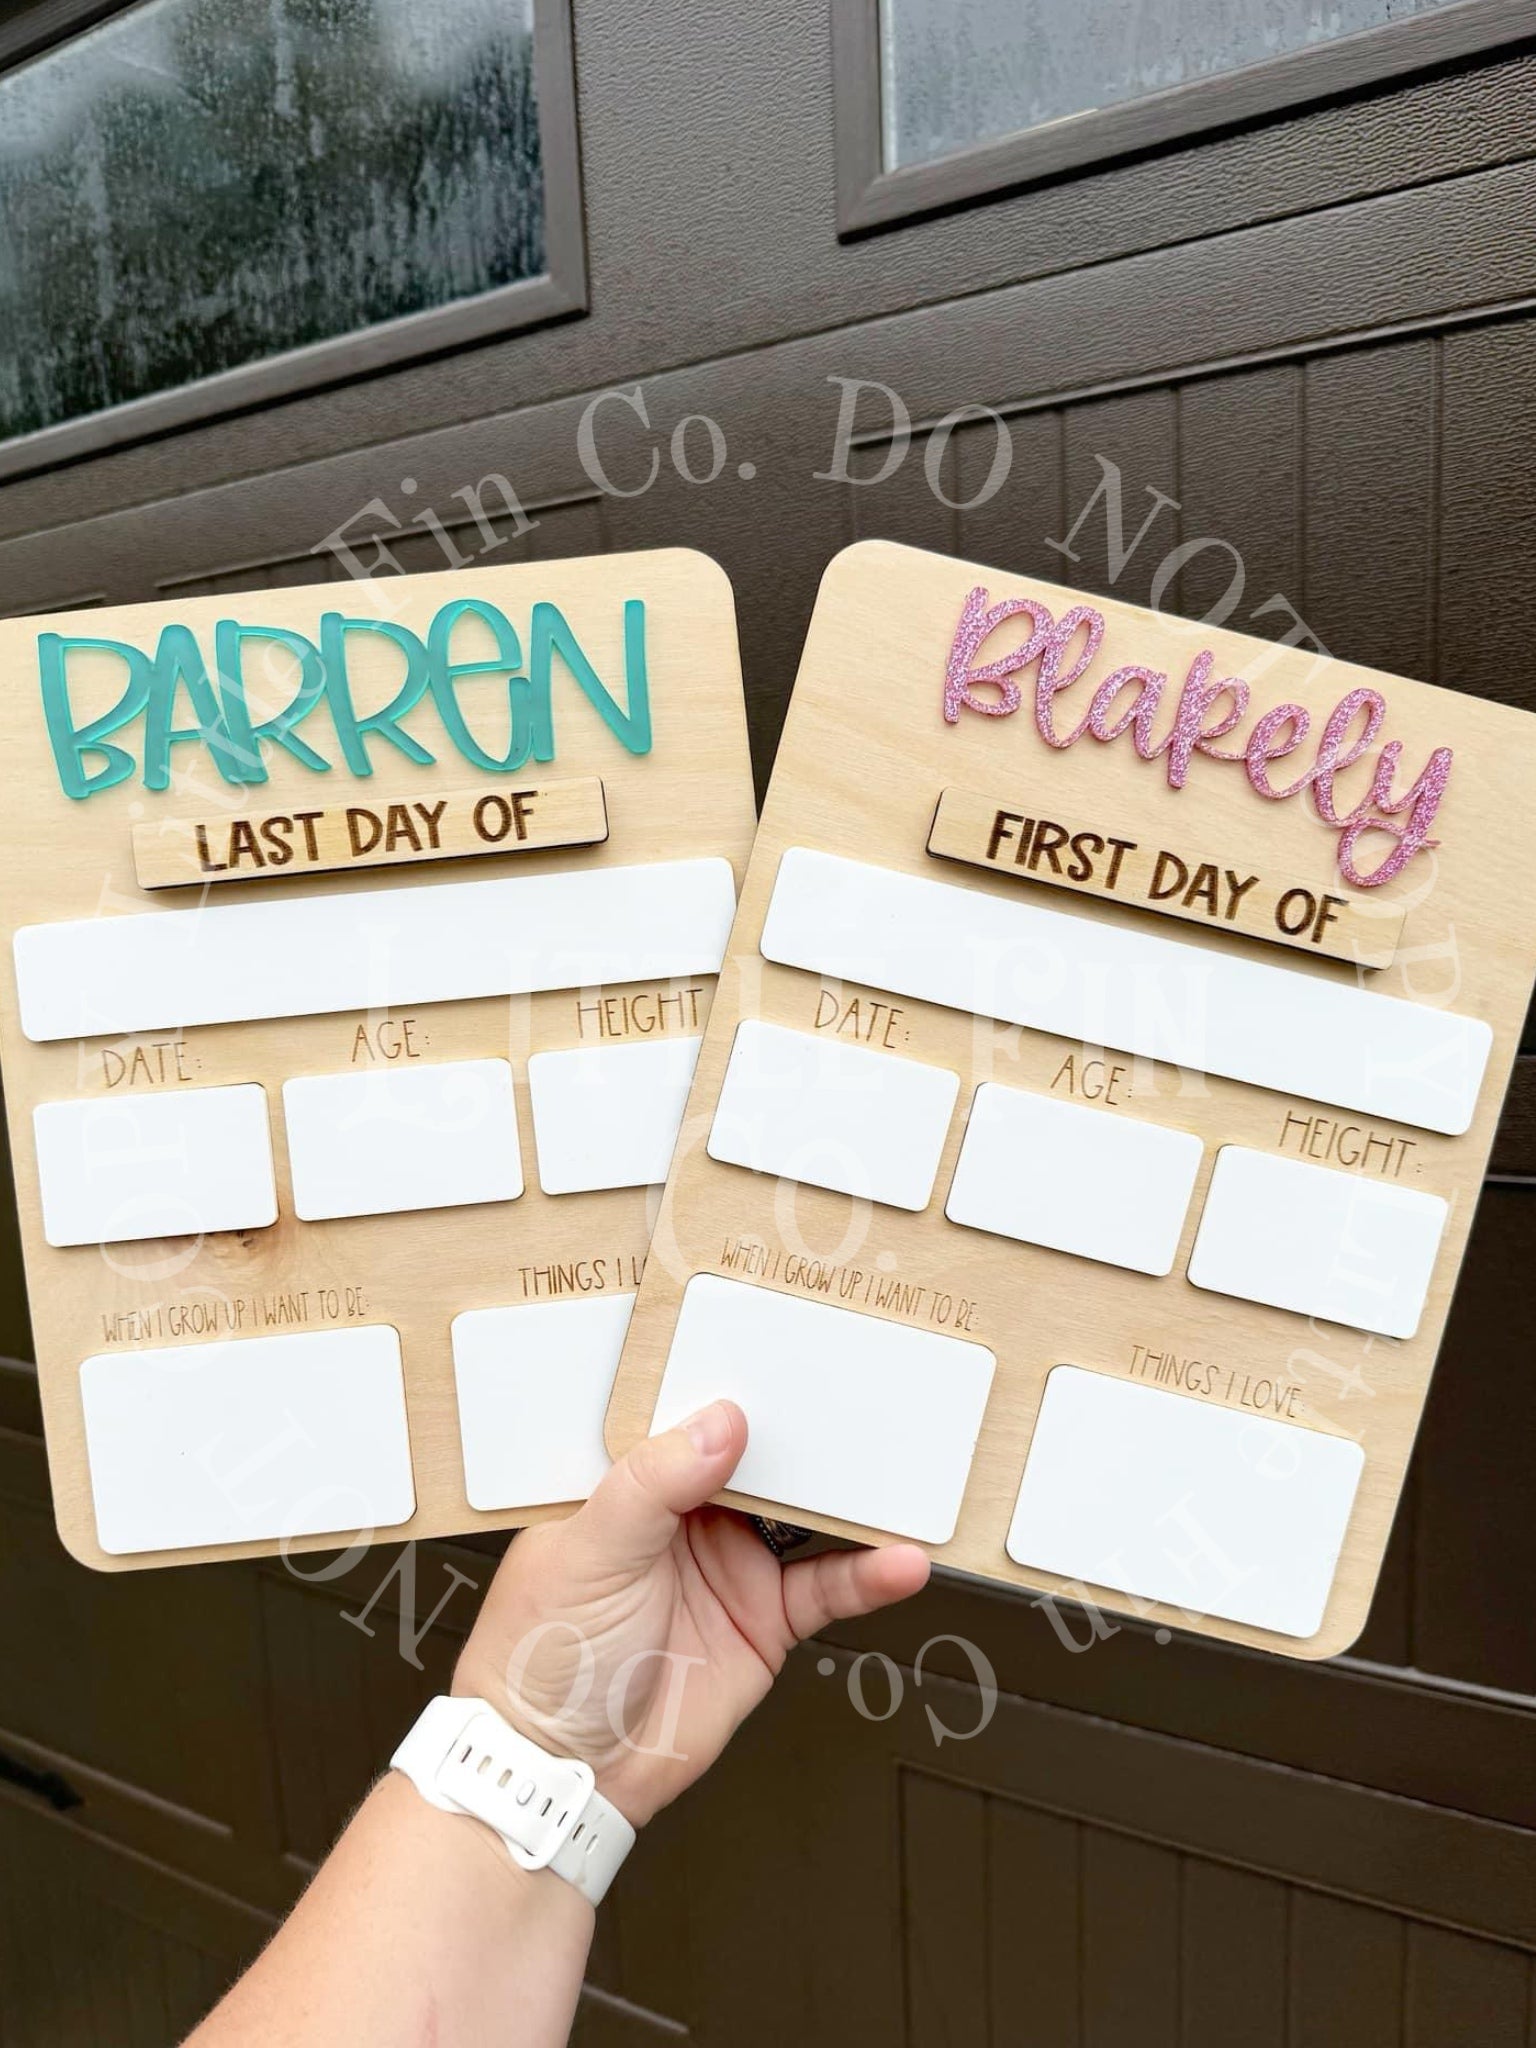 BARREN
LAST DAY OF
DATE:
AGE:
HEIGHT
WHEN I GROW UP I WANT TO BE:
THINGS I L
Blakely
FIRST DAY OF
DATE:
AGE:
HEIGHT:
WHEN I GROW UP I WANT TO BE:
THINGS I LOVE:
Little Fin Co. DO NOT COPY Little Fin Co. DO NOT COPY
LITTLE FIN
CO.